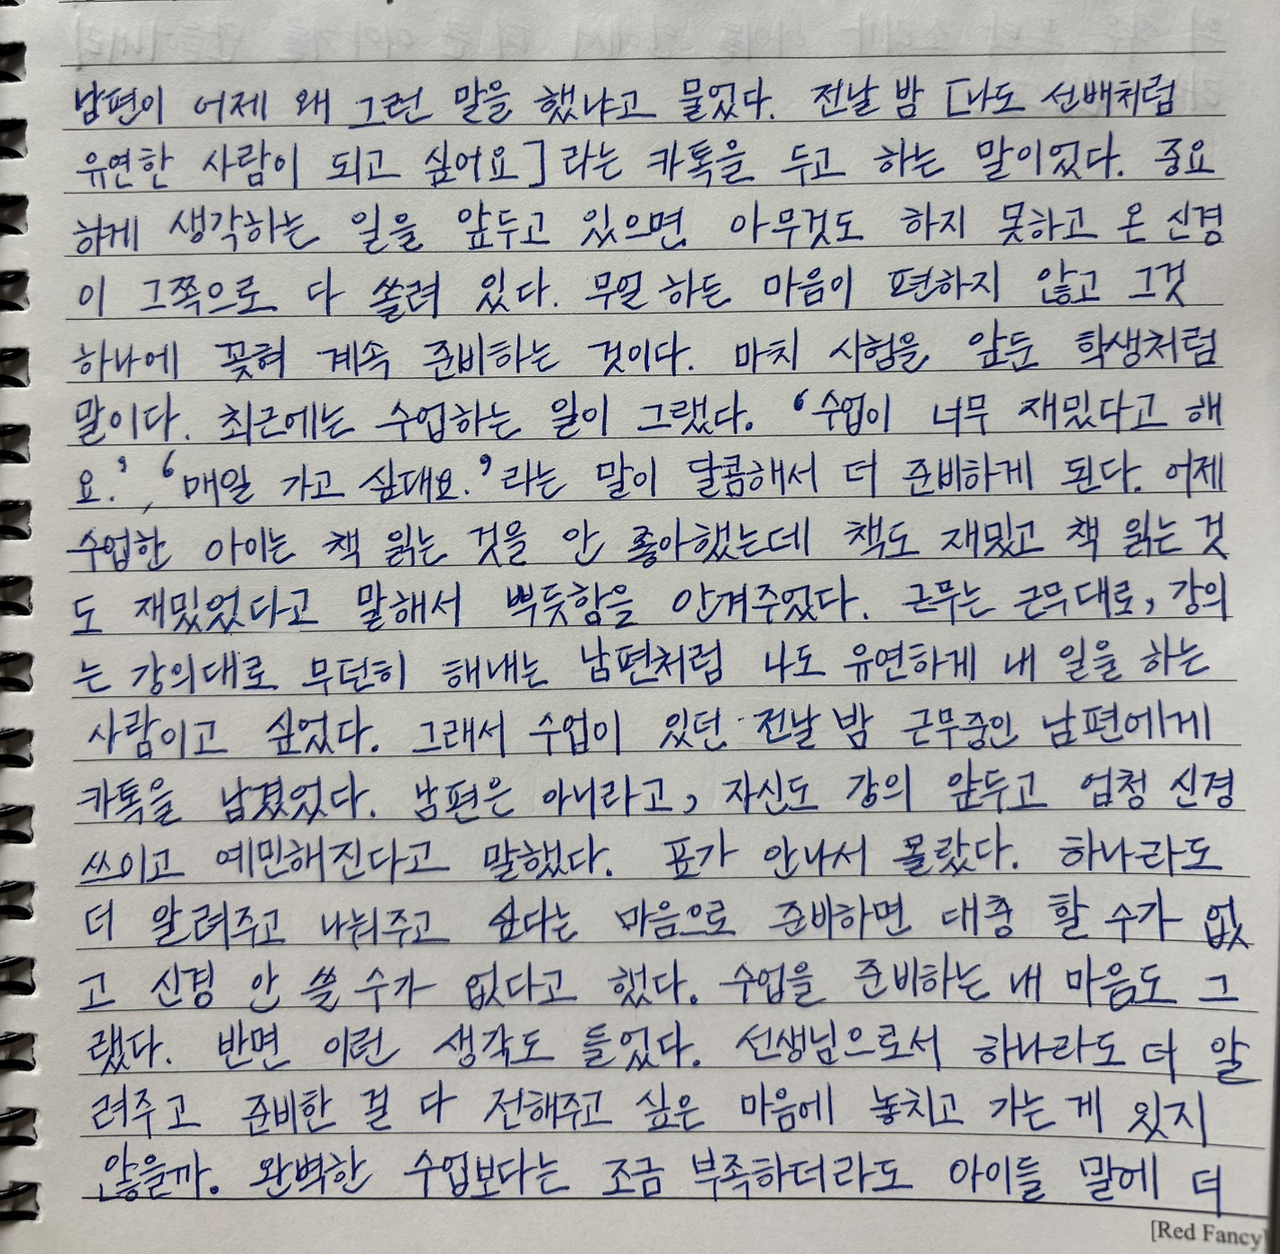 남편이 어제 왜 그런 말을 했냐고 물었다. 전날 밤 [나도 선배처럼
유연한 사람이 되고 싶어요]라는 카톡을 두고 하는 말이었다. 중요
하게 생각하는 일을 앞두고 있으면 아무것도 하지 못하고 온 신경
이 그쪽으로 다 쏠려 있다. 무얼 하든 마음이 편하지 않고 그것
하나에 꽂혀 계속 준비하는 것이다. 마치 시험을 앞둔 학생처럼
말이다. 최근에는 수업하는 일이 그랬다. '수업이 너무 재밌다고 해
요.', '매일 가고 싶대요.'라는 말이 달콤해서 더 준비하게 된다. 어제
수업한 아이는 책 읽는 것을 안 좋아했는데 책도 재밌고 책 읽는 것
도 재밌었다고 말해서 뿌듯함을 안겨주었다. 근무는 근무대로, 강의
는 강의대로 무던히 해내는 남편처럼 나도 유연하게 내 일을 하는
사람이고 싶었다. 그래서 수업이 있던 전날 밤 근무중인 남편에게
카톡을 남겼었다. 남편은 아니라고, 자신도 강의 앞두고 엄청 신경
쓰이고 예민해진다고 말했다. 표가 안나서 몰랐다. 하나라도
더 알려주고 나눠주고 싶다는 마음으로 준비하면 대충 할 수가 없
고 신경 안 쓸 수가 없다고 했다. 수업을 준비하는 내 마음도 그
랬다. 반면 이런 생각도 들었다. 선생님으로서 하나라도 더 알
려주고 준비한 걸 다 전해주고 싶은 마음에 놓치고 가는 게 있지
않을까. 완벽한 수업보다는 조금 부족하더라도 아이들 말에 더
[Red Fancy]